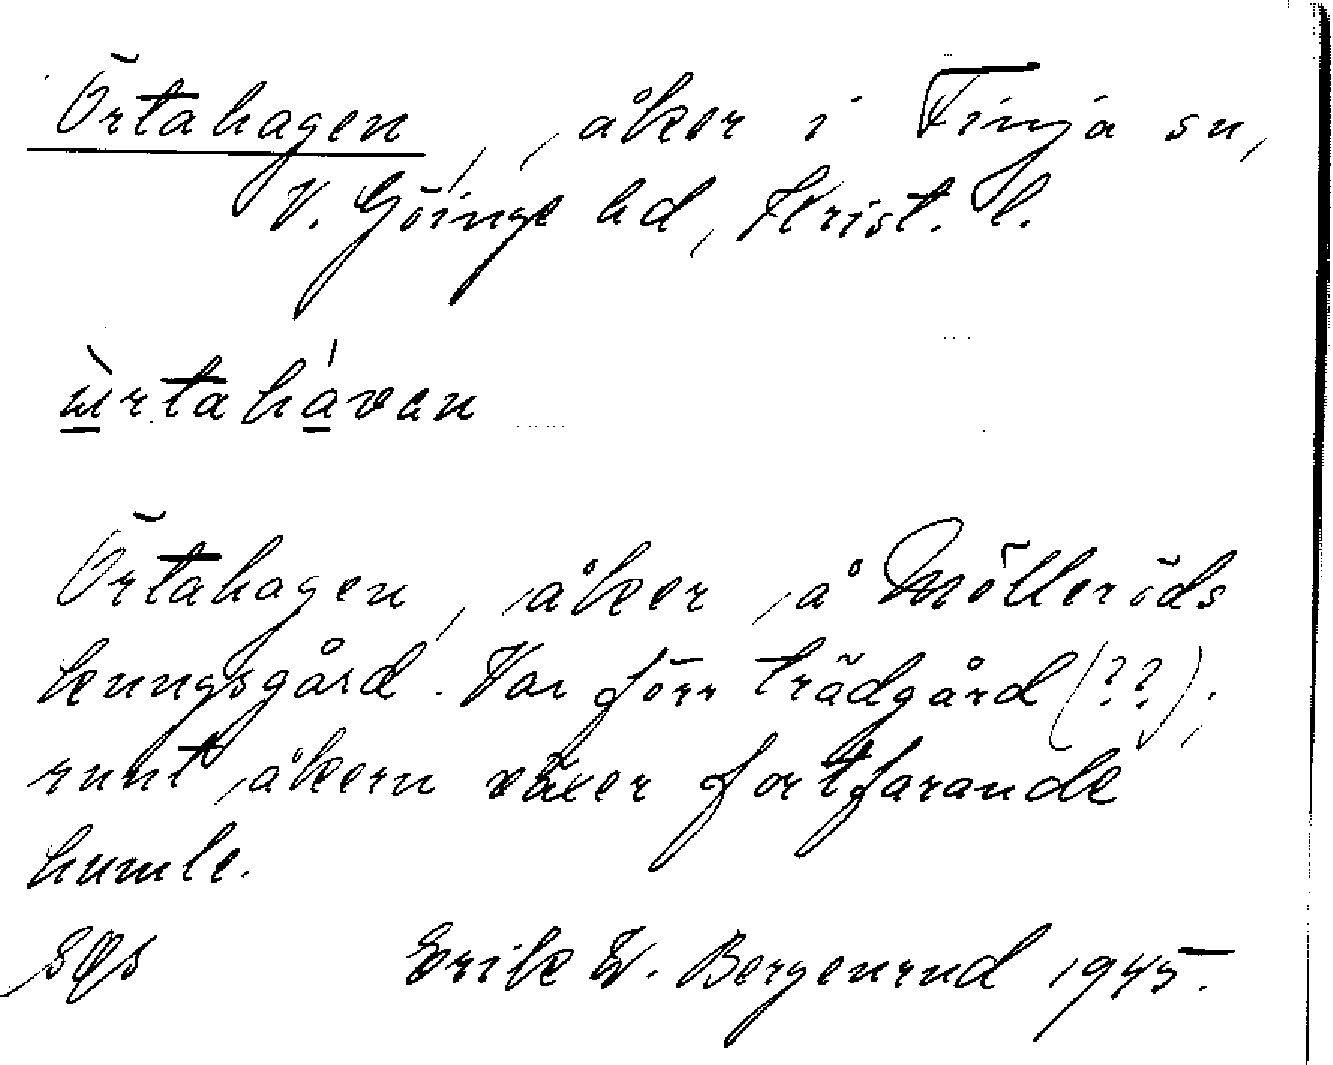 Örtahagen, åker i Finja sn,
V. Göinge hd, Krist. l.
ùrtahávan
Örtahagen, åker å Mölleröds
kungsgård. Var förr trädgård (??);
runt åkern växer fortfarande
humle.
Erik W. Bergenrud 1945.